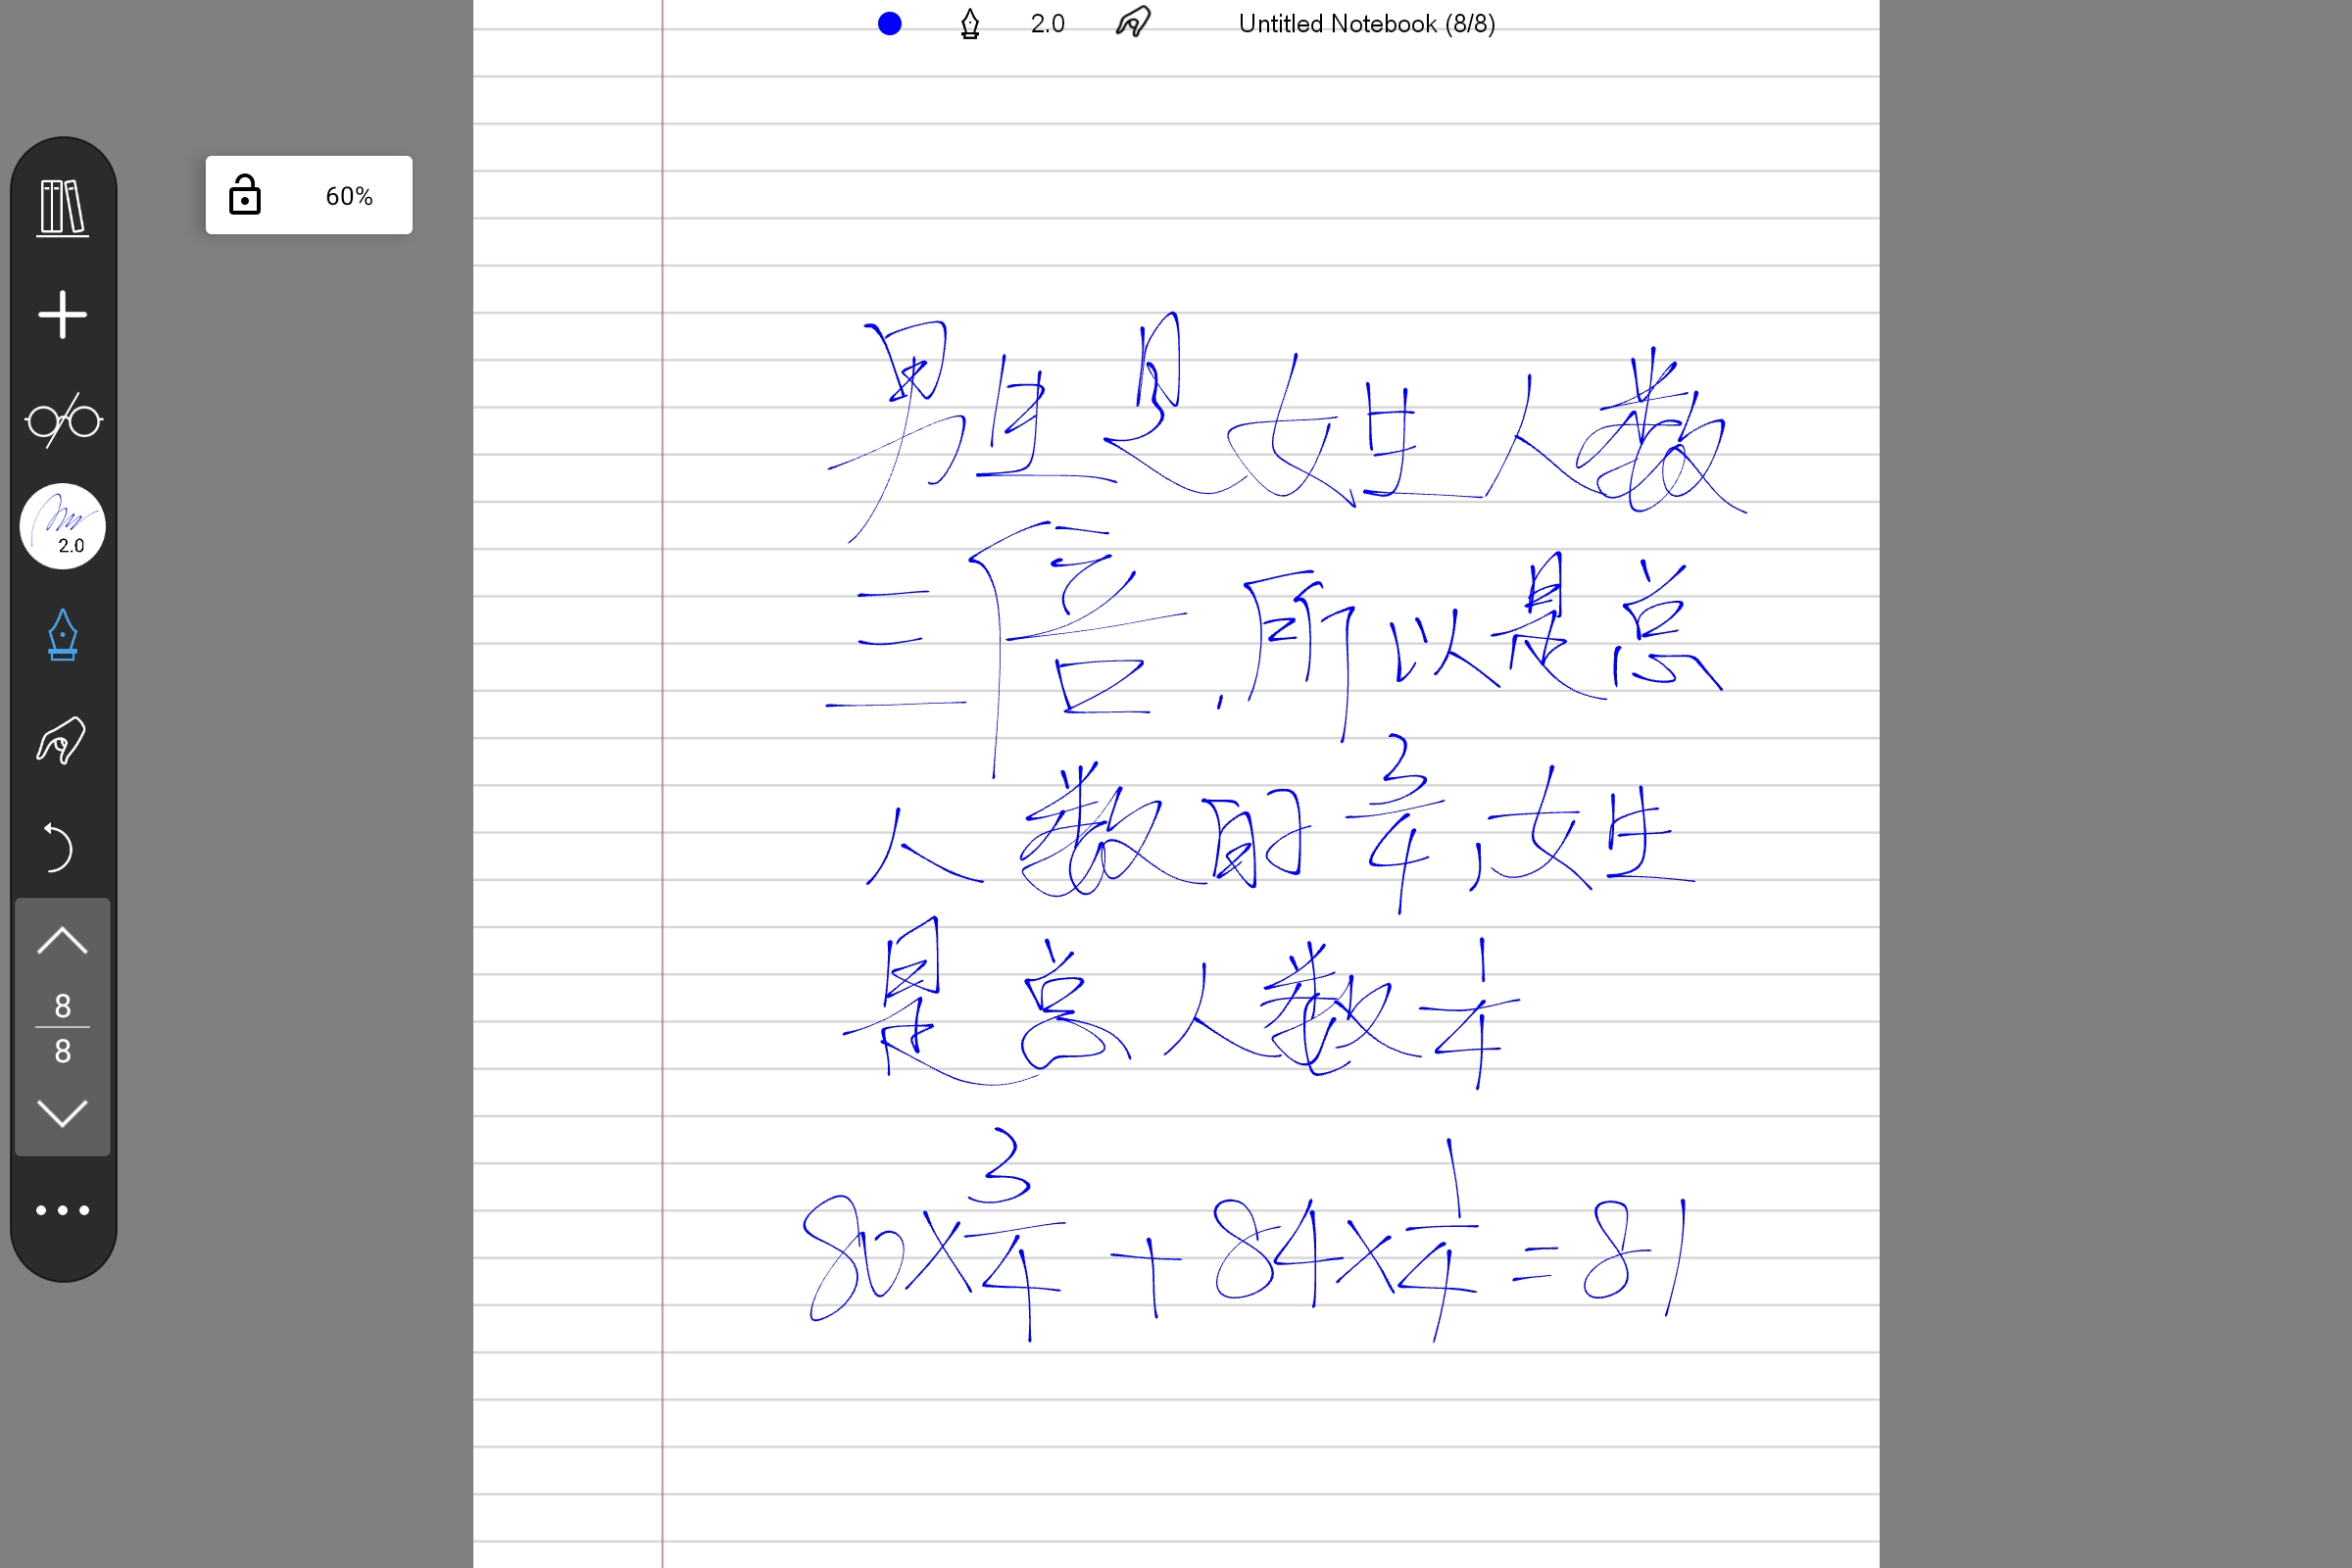 2.0 Untitled Notebook (8/8)
60%
2.0
8
8
男生是女生人数
三倍,所以是总
人数的3/4,女生
是总人数1/4
80×3/4+84×1/4=81